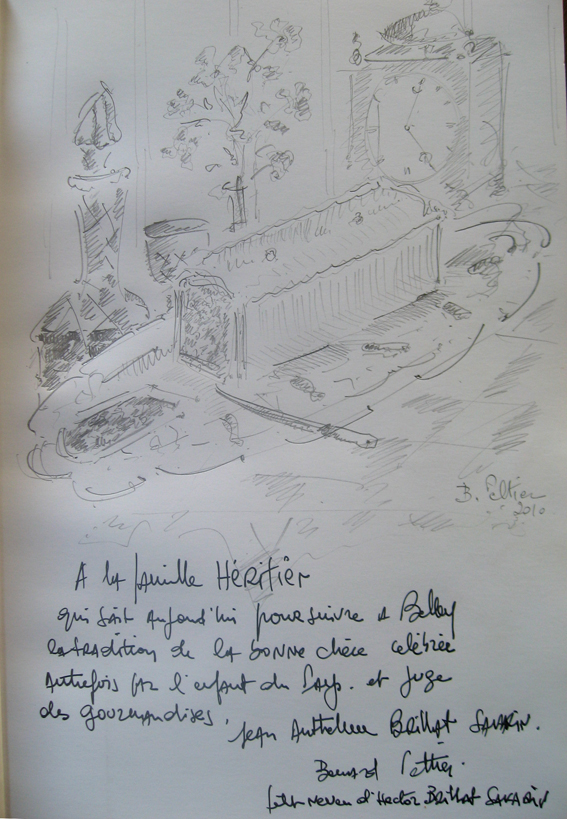 B. Peltier
2010
A la famille HÉRITIER
qui sait aujourd'hui poursuivre à Belley
la tradition de la bonne chère célébrée
autrefois par l'enfant du Pays. et juge
des gourmandises,
Jean Anthelme BRILLAT SAVARIN.
Bernard Peltier.
petit neveu d'Hector BRILLAT SAVARIN